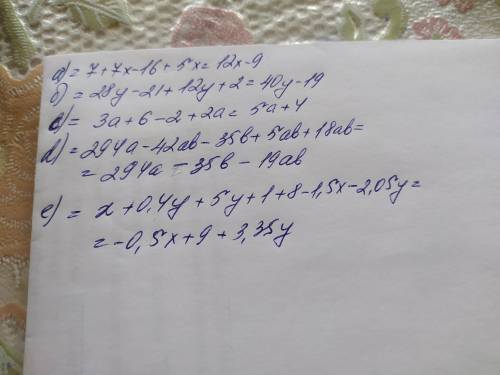 а) = 7+7x-16+5x=12x-9
б) = 28y-21+12y+2=40y-19
c) = 3a+6-2+2a=5a+4
d) = 294a-42ab-35b+5ab+18ab=
= 294a-35b-19ab
e) = x+0,4y+5y+1+8-1,5x-2,05y=
= -0,5x+9+3,35y